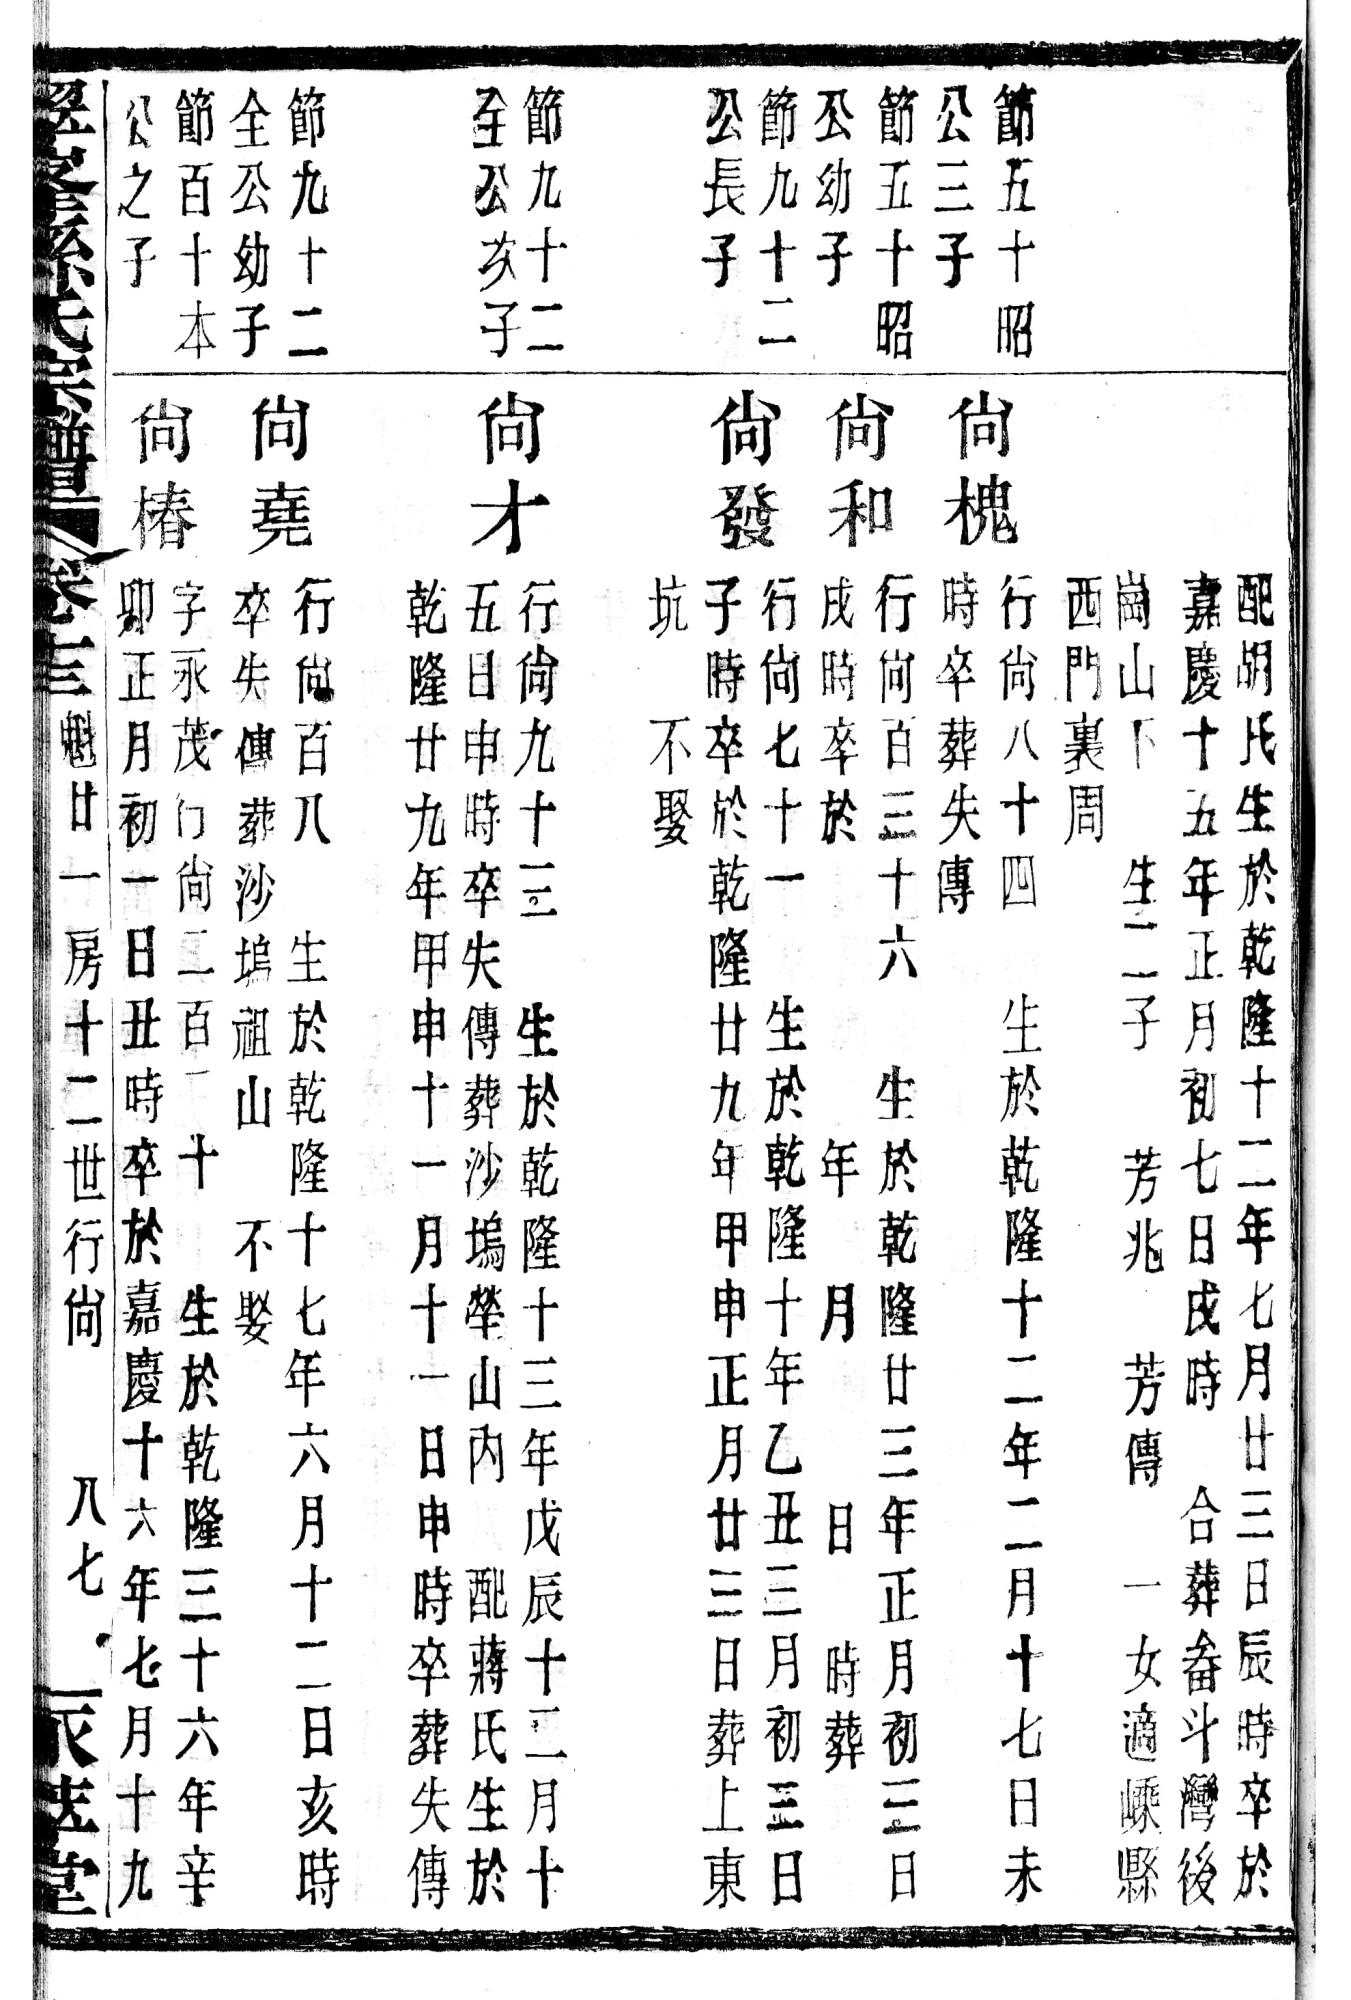 配胡氏生於乾隆十二年七月廿三日辰時卒於
嘉慶十五年正月初七日戌時 合葬畨斗灣後
崗山下 生二子 芳兆 芳傳 一女適嵊縣
西門裏周
節五十昭
公三子
尙槐
行尙八十四 生於乾隆十二年二月十七日未
時卒葬失傳
節五十昭
公幼子
尙和
行尙百三十六 生於乾隆廿三年正月初三日
戌時卒於 年 月 日 時葬
節九十二
公長子
尙發
行尙七十一 生於乾隆十年乙丑三月初三日
子時卒於乾隆廿九年甲申正月廿三日葬上東
坑 不娶
節九十二
全公次子
尙才
行尙九十三 生於乾隆十三年戊辰十二月十
五日申時卒失傳葬沙塢塋山內 配蔣氏生於
乾隆廿九年甲申十一月十一日申時卒葬失傳
節九十二
全公幼子
尙堯
行尙百八 生於乾隆十七年六月十二日亥時
卒失傳葬沙塢祖山 不娶
節百十本
公之子
尙椿
字永茂行尙二百二十 生於乾隆三十六年辛
卯正月初一日丑時卒於嘉慶十六年七月十九
孫氏宗譜 卷十三 魁廿一房十二世行尙 八七 堂